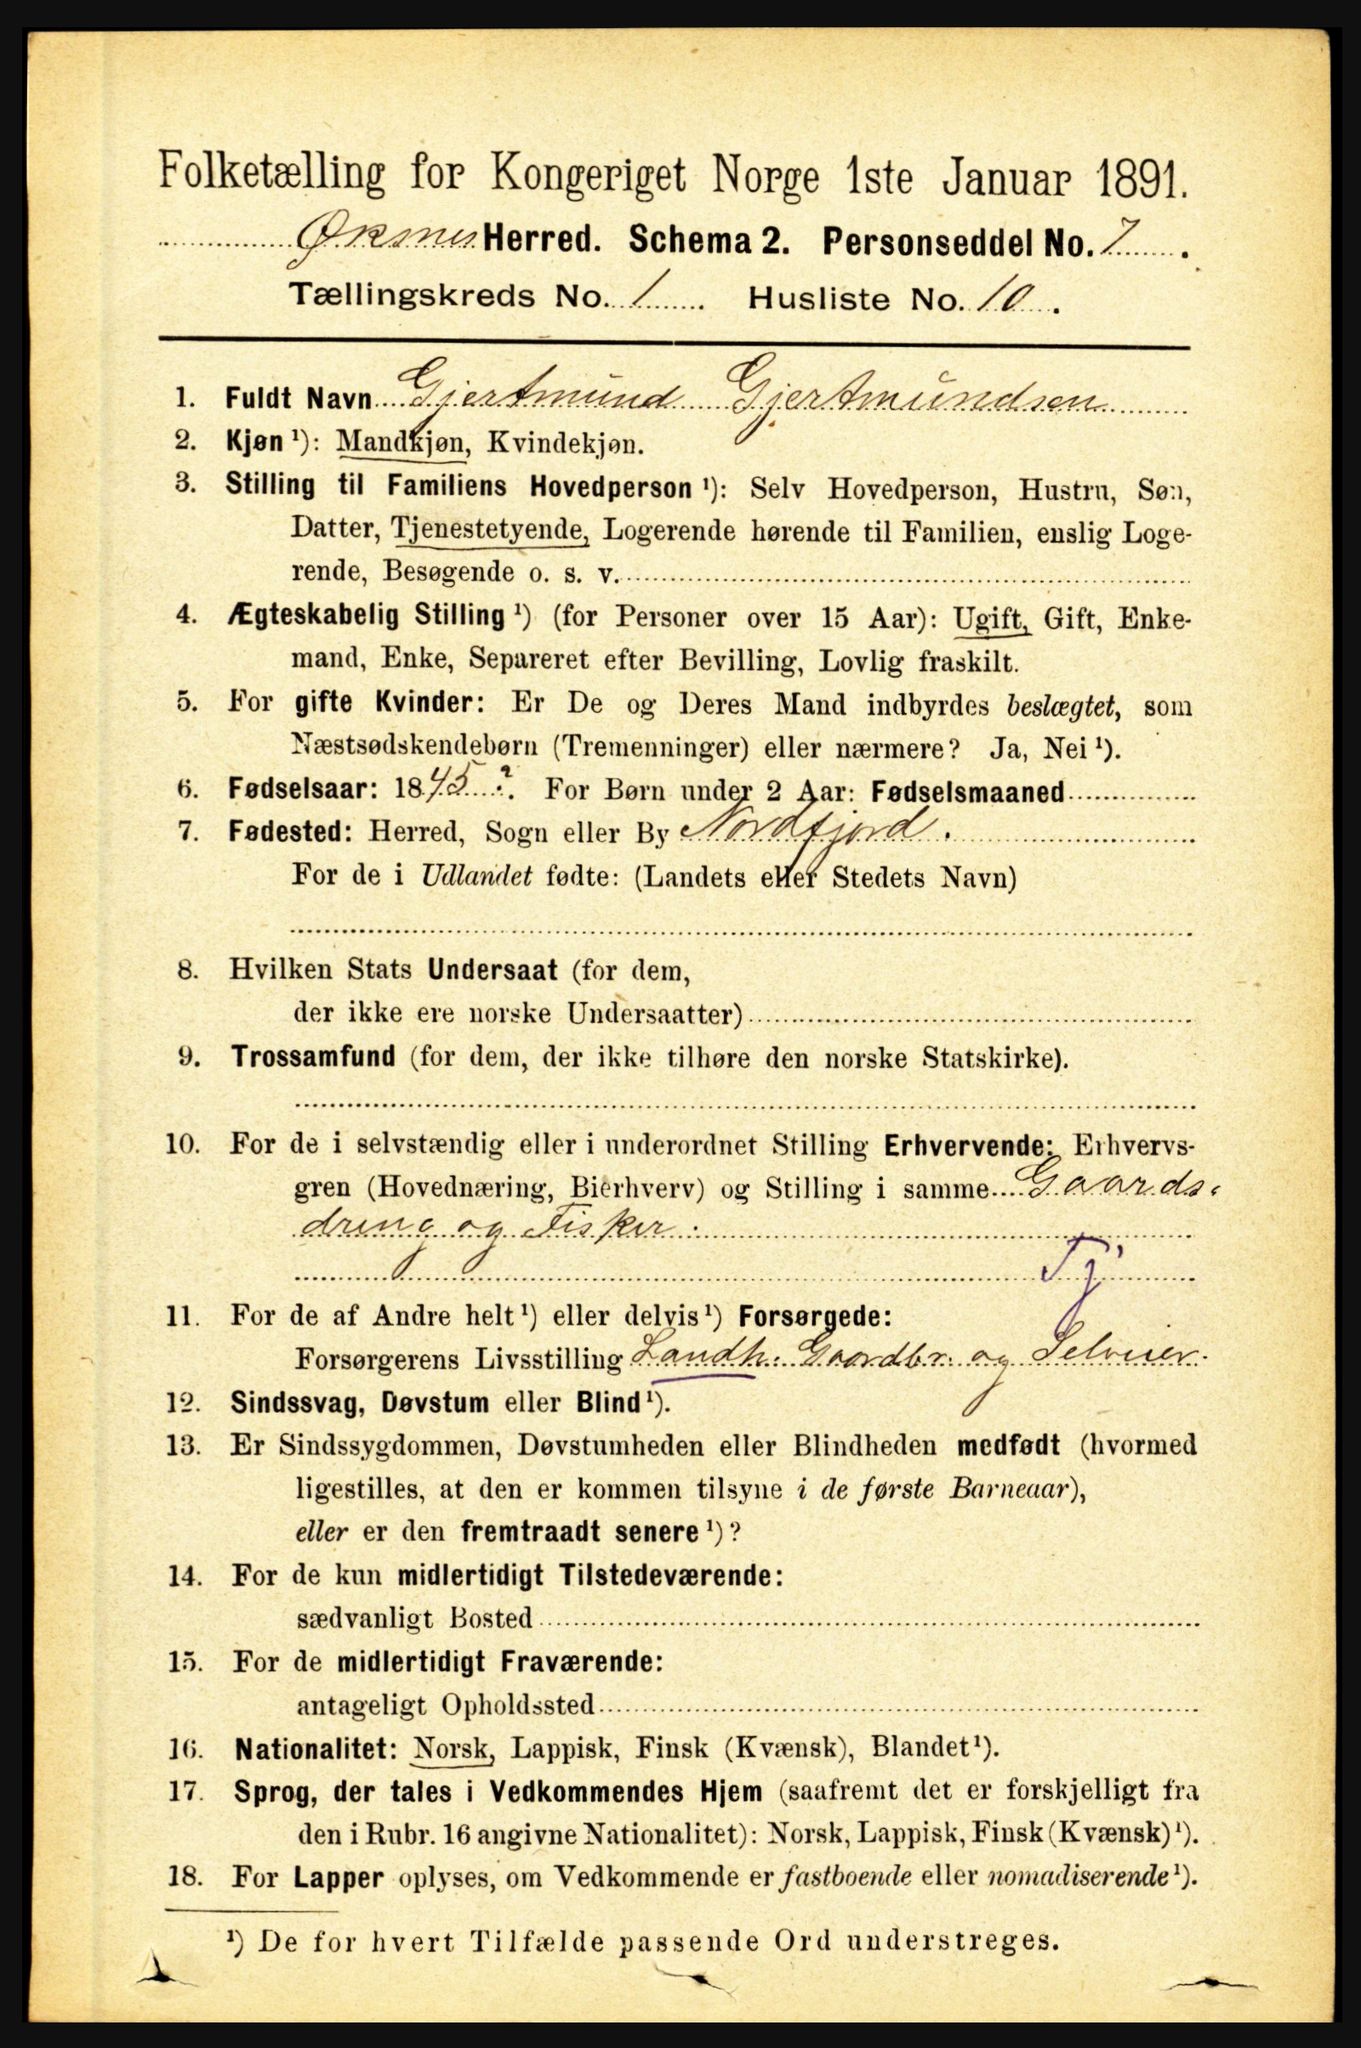 Folketælling for Kongeriget Norge 1ste Januar 1891.
Øksnes Herred. Schema 2. Personseddel No. 7.
Tællingskreds No. 1. Husliste No. 10.
1. Fuldt Navn Gjertmund Gjertmundsen
2. Kjøn ¹): Mandkjøn, Kvindekjøn.
3. Stilling til Familiens Hovedperson ¹): Selv Hovedperson, Hustru, Søn,
Datter, Tjenestetyende, Logerende hørende til Familien, enslig Loge-
rende, Besøgende o. s. v.
4. Ægteskabelig Stilling ¹) (for Personer over 15 Aar): Ugift, Gift, Enke-
mand, Enke, Separeret efter Bevilling, Lovlig fraskilt.
5. For gifte Kvinder: Er De og Deres Mand indbyrdes beslægtet, som
Næstsødskendebørn (Tremenninger) eller nærmere? Ja, Nei ¹).
6. Fødselsaar: 1845?. For Børn under 2 Aar: Fødselsmaaned
7. Fødested: Herred, Sogn eller By Nordfjord.
For de i Udlandet fødte: (Landets eller Stedets Navn)
8. Hvilken Stats Undersaat (for dem,
der ikke ere norske Undersaatter)
9. Trossamfund (for dem, der ikke tilhøre den norske Statskirke).
10. For de i selvstændig eller i underordnet Stilling Erhvervende: Erhvervs-
gren (Hovednæring, Bierhverv) og Stilling i samme Gaards-
dreng og Fisker.
Tj
11. For de af Andre helt ¹) eller delvis ¹) Forsørgede:
Forsørgerens Livsstilling Landh. Gaardbr. og Selveier.
12. Sindssvag, Døvstum eller Blind ¹).
13. Er Sindssygdommen, Døvstumheden eller Blindheden medfødt (hvormed
ligestilles, at den er kommen tilsyne i de første Barneaar),
eller er den fremtraadt senere ¹)?
14. For de kun midlertidigt Tilstedeværende:
sædvanligt Bosted
15. For de midlertidigt Fraværende:
antageligt Opholdssted
16. Nationalitet: Norsk, Lappisk, Finsk (Kvænsk), Blandet ¹).
17. Sprog, der tales i Vedkommendes Hjem (saafremt det er forskjelligt fra
den i Rubr. 16 angivne Nationalitet): Norsk, Lappisk, Finsk (Kvænsk) ¹).
18. For Lapper oplyses, om Vedkommende er fastboende eller nomadiserende ¹).
¹) De for hvert Tilfælde passende Ord understreges.